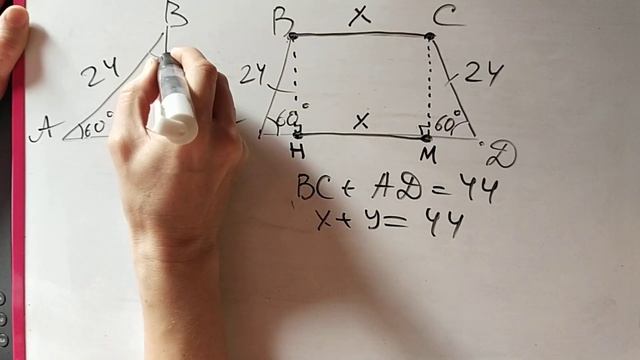 B
24
A 60°
B X C
24 24
60° X 60°
H M D
BC + AD = 44
X + y = 44